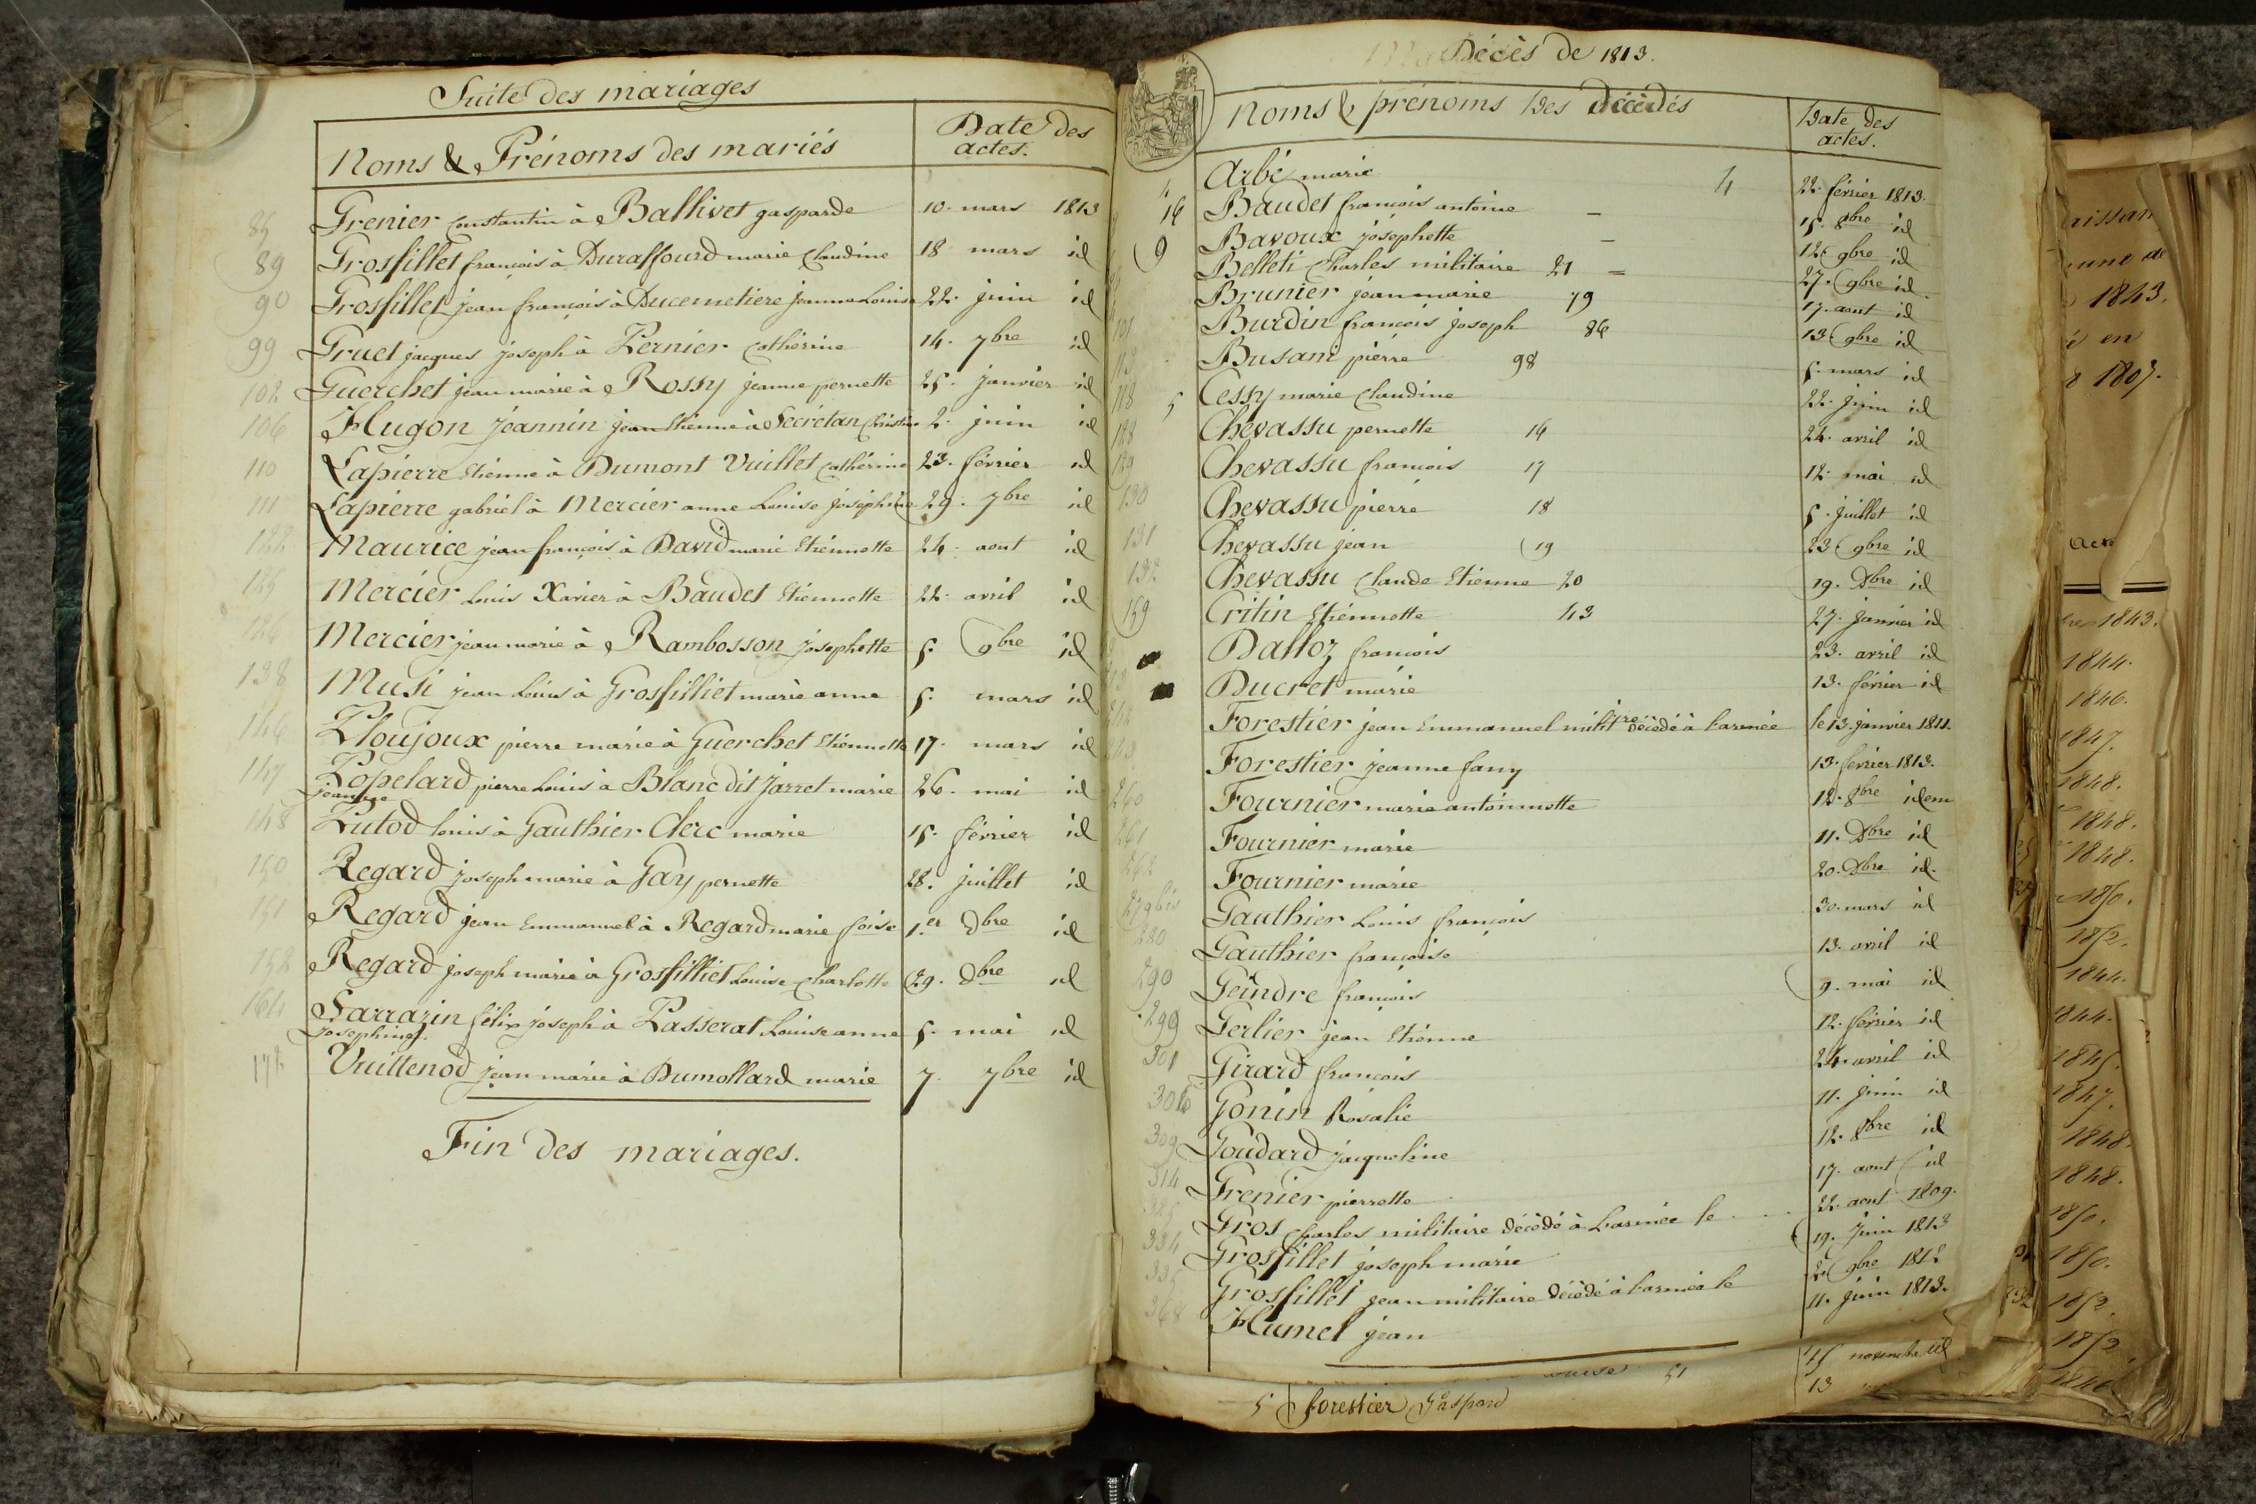 Suite des mariages
Noms & Prénoms des mariés
Date des
actes.
85 Grenier Constantin à Ballivet gasparde 10. mars 1813
89 Grosfillet françois à Duraffourd marie Claudine 18 mars id
90 Grosfillet jean françois à Ducemetiere jeanne Louise 22. juin id
99 Gruet jacques joseph à Pernier Catherine 14. 7bre id
102 Guerchet jean marie à Rossy jeanne pernette 25. janvier id
106 Hugon Jeannin jean Etienne à Secretan Christine 2. juin id
110 Lapierre Etienne à Dumont Vuillet Cathérine 23. février id
111 Lapierre gabriel à Mercier anne Louise Joséphine 29. 7bre id
122 Maurice jean françois à David marie Etiennette 24. aout id
125 Mercier Louis Xavier à Baudet Etiennette 22. avril id
126 Mercier jean marie à Rambosson josephette 5. 9bre id
138 Musi jean Louis à Grosfilliet marie anne 5. mars id
146 Ploujoux pierre marie à Guerchet Etiennette 17. mars id
147 Popelard pierre Louis à Blanc dit jarret marie 26. mai id
jeanne
148 Putod louis à Gauthier Clerc marie 15. février id
150 Regard joseph marie à Gay pernette 28. juillet id
151 Regard jean Emmanuel à Regard marie foise 1.er Dbre id
152 Regard joseph marie à Grosfilliet Louise Charlotte 29. Dbre id
164 Sarrazin félix joseph à Passerat Louise anne 5. mai id
Josephine.
172 Vuillenod jean marie à Dumollard marie 7. 7bre id
Fin des mariages.
Décès de 1813.
Noms & prénoms des décédés
Date des
actes.
4 Arbé marie 4 22. février 1813.
16 Baudet françois antoine 15. 8bre id
9 Bavoux josephette 12. 9bre id
Belleti Charles militaire 21 27. 9bre id
Brunier jean marie 79 17. aout id
101 Burdin françois joseph 86 13. 9bre id
113 Busani pierre 98 5. mars id
118 5 Cessy marie Claudine 22. juin id
128 Chevassu pernette 16 24. avril id
129 Chevassu françois 17 12. mai id
130 Chevassu pierre 18 5. juillet id
131 Chevassu jean 19 23. 9bre id
132 Chevassu Claude Etienne 20 19. Dbre id
159 Critin Etiennette 43 27. janvier id
Dalloz françois 23. avril id
Ducret marie 13. février id
Forestier jean Emmanuel militre décédé à l'armée le 13. janvier 1811.
Forestier jeanne fany 13. février 1813.
260 Fournier marie antoinnette 12. 8bre idem
261 Fournier marie 11. Dbre id
262 Fournier marie 20. Dbre id.
279 bis Gauthier Louis françois 30. mars id
280 Gauthier françoise 13. avril id
290 Geindre françois 9. mai id
299 Gerlier jean Etienne 12. février id
301 Girard françois 24. avril id
306 Gonin Rosalie 11. juin id
309 Goudard jacqueline 12. 8bre id
314 Grenier pierrette 17. aout id
325 Gros Charles militaire décédé à L'armée le 22. aout 1809.
334 Grosfillet joseph marie 19. juin 1813
335 Grosfillet jean militaire décédé à l'armée le 2. 9bre 1812
368 Humel jean 11. juin 1813.
51 15 novembre id
5 forestier Gaspard 13
1843.
en
1807.
1843.
1844.
1846.
1847.
1848.
1848.
1848.
1850.
1852.
1844.
1844.
1845.
1847.
1848.
1848.
1850.
1850.
1852.
1852